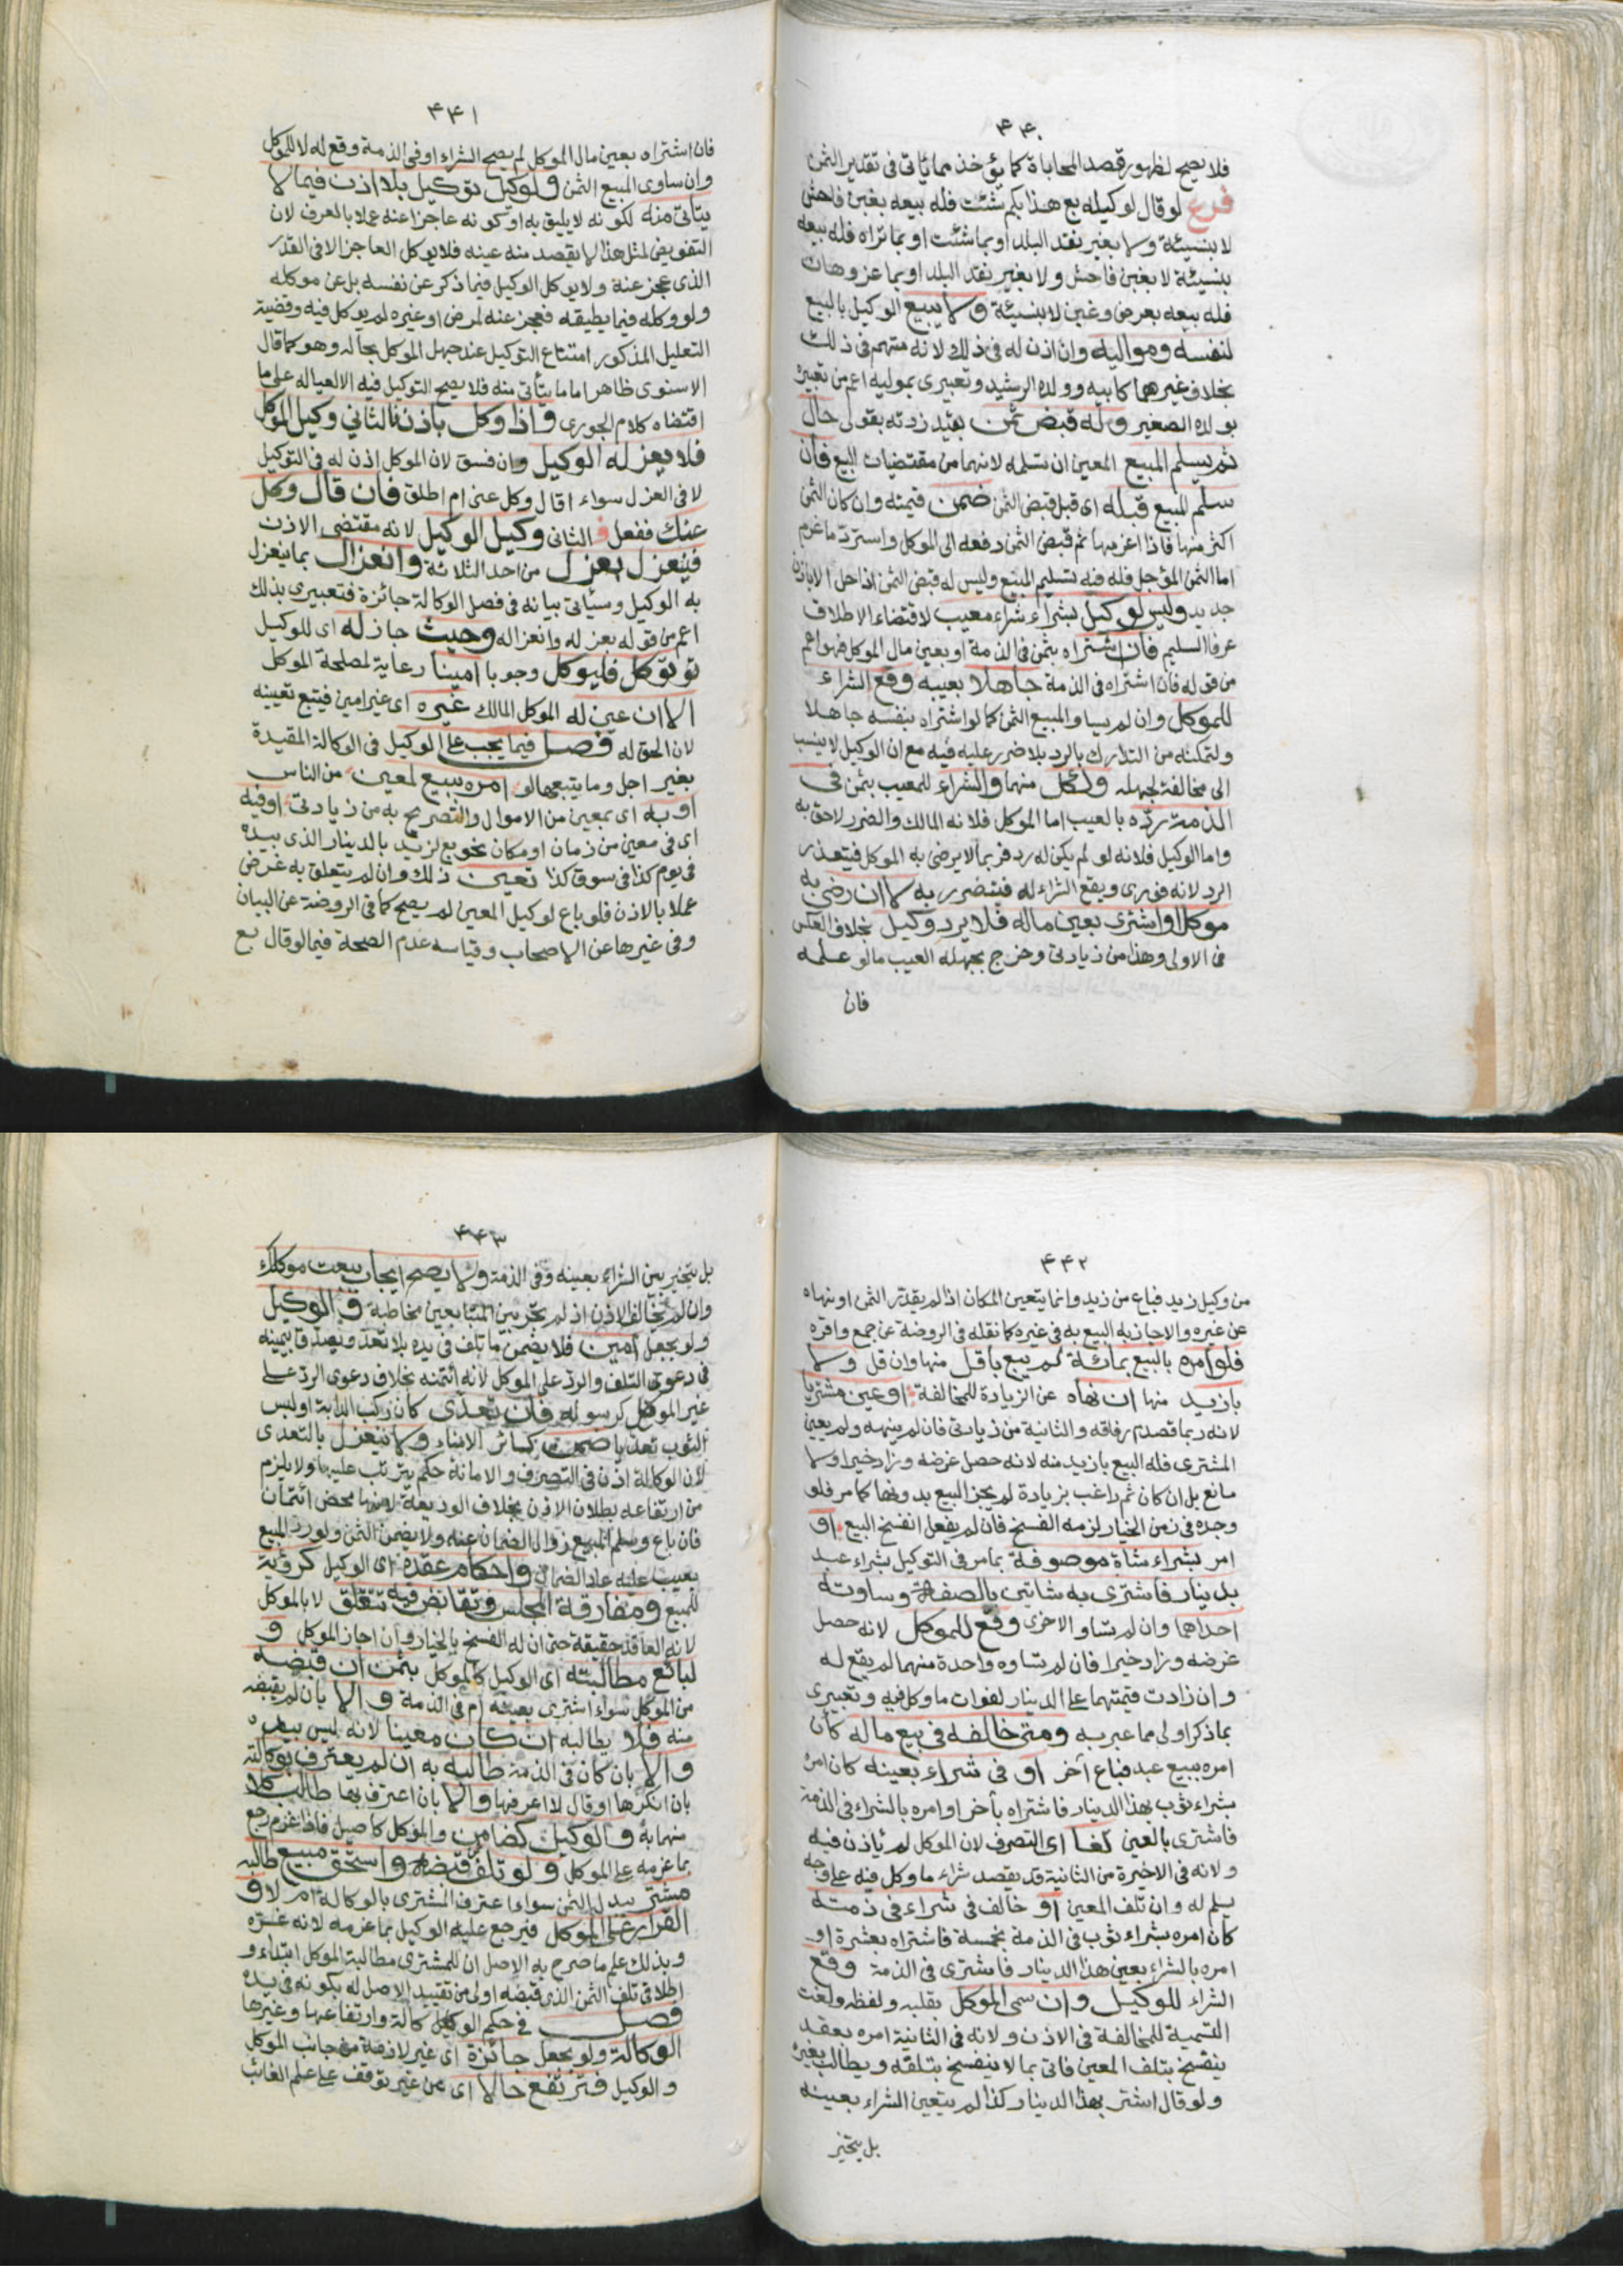 ۴۴۰
فلا يصح لظهور قصد المحاباة كما يؤخذ مما يأتى فى تقدير الثمن
فرع لو قال لوكيله بع هذا بكم شئت فله بيعه بغبن فاحش
لا بنسيئة ولا بغير نقد البلد او بما شئت او بما تراه فله بيعه
بنسيئة لا بغبن فاحش ولا بغير نقد البلد او بما عز وهان
فله بيعه بعرض وغبن لا بنسيئة ولا يبيع الوكيل بالبيع
لنفسه وموليه وان اذن له فى ذلك لانه متهم فى ذلك
بخلاف غيرهما كابيه وولده الرشيد وتعبيرى بموليه اعم من تعبيره
بولده الصغير وله قبض ثمن بقيد زدته بقولى حال
ثم يسلم المبيع المعين ان تسلمه لانهما من مقتضيات البيع فان
سلم المبيع قبله اى قبل قبض الثمن ضمن قيمته وان كان الثمن
اكثر منها فاذا اغرمها ثم قبض الثمن دفعه الى الموكل واسترد ما غرم
اما الثمن المؤجل فله فيه تسليم المبيع وليس له قبض الثمن اذا حل الا باذن
جديد وليس لوكيل بشراء شراء معيب لاقتضاء الاطلاق
عرفا السليم فان اشتراه بثمن فى الذمة او بعين مال الموكل فهو اعم
من قوله فان اشتراه فى الذمة جاهلا بعيبه وقع الشراء
للموكل وان لم يساو المبيع الثمن كما لو اشتراه بنفسه جاهلا
ولتمكنه من التدارك بالرد بلا ضرر عليه فيه مع ان الوكيل لا ينسب
الى مخالفة لجهله ولكل منهما والشراء للمعيب بثمن فى
الذمة رده بالعيب اما الموكل فلانه المالك والضرر لاحق به
واما الوكيل فلانه لو لم يكن له رد فربما لا يرضى به الموكل فيتعذر
الرد لانه فورى ويقع الشراء له فيتضرر به لا ان رضى به
موكل او اشترى بعين ماله فلا يرد وكيل بخلاف العكس
فى الاولى وهذا من زيادتى وخرج بجهله العيب ما لو علمه
فان
۴۴۱
فان اشتراه بعين مال الموكل لم يصح الشراء او فى الذمة وقع له لا للموكل
وان ساوى المبيع الثمن ولوكيل توكيل بلا اذن فيما لا
يتأتى منه لكونه لا يليق به او كونه عاجزا عنه عملا بالعرف لان
التفويض لمثل هذا لا يقصد منه عينه فلا يوكل العاجز الا فى القدر
الذى عجز عنه ولا يوكل الوكيل فيما ذكر عن نفسه بل عن موكله
ولو وكله فيما يطيقه فعجز عنه لمرض او غيره لم يوكل فيه وقضية
التعليل المذكور امتناع التوكيل عند جهل الموكل بحاله وهو كما قال
الاسنوى ظاهر اما ما يتأتى منه فلا يصح التوكيل فيه الا لعياله على ما
اقتضاه كلام الجورى واذا وكل باذن فالثاني وكيل الموكل
فلا يعزله الوكيل وان فسق لان الموكل اذن له فى التوكيل
لا فى العزل سواء اقال وكل عنى ام اطلق فان قال وكل
عنك ففعل فالثانى وكيل الوكيل لانه مقتضى الاذن
فينعزل بعزل من احد الثلاثة وانعزال بما ينعزل
به الوكيل وسيأتى بيانه فى فصل الوكالة جائزة فتعبيرى بذلك
اعم من قوله بعزله وانعزاله وحيث جاز له اى للوكيل
توكيل فليوكل وجوبا امينا رعاية لمصلحة الموكل
الا ان عين له الموكل المالك غيره اى غير امين فيتبع تعيينه
لان الحق له فصل فيما يجب على الوكيل فى الوكالة المقيدة
بغير اجل وما يتبعها لو امره ببيع لمعين من الناس
او به اى بمعين من الاموال والتصريح به من زيادتى او فيه
اى فى معين من زمان او مكان نحو بع لزيد بالدينار الذى بيده
فى يوم كذا فى سوق كذا تعين ذلك وان لم يتعلق به غرض
عملا بالاذن فلو باع لوكيل المعين لم يصح كما فى الروضة عن البيان
وفى غيرها عن الاصحاب وقياسه عدم الصحة فيما لو قال بع
۴۴۲
من وكيل زيد فباع من زيد وانما يتعين المكان اذا لم يقدر الثمن او نهاه
عن غيره والا جاز به البيع به فى غيره كما نقله فى الروضة عن جمع واقره
فلو امره بالبيع بمائة لم يبع باقل منها وان قل ولا
بازيد منها ان نهاه عن الزيادة للمخالفة او عين مشتريا
لانه ربما قصد ارفاقه والثانية من زيادتى فان لم ينهه ولم يعين
المشترى فله البيع بازيد منه لانه حصل غرضه وزاد خيرا ولا
مانع بل ان كان ثم راغب بزيادة لم يجز البيع بدونها كما مر فلو
وجده فى زمن الخيار لزمه الفسخ فان لم يفعل انفسخ البيع او
امر بشراء شاة موصوفة بما مر فى التوكيل بشراء عبد
بدينار فاشترى به شاتين بالصفة وساوته
احداهما وان لم تساو الاخرى وقع للموكل لانه حصل
غرضه وزاد خيرا فان لم تساوه واحدة منهما لم يقع له
وان زادت قيمتهما على الدينار لفوات ما وكل فيه وتعبيرى
بما ذكر اولى مما عبر به ومتى خالفه فى بيع ماله كأن
امره ببيع عبد فباع آخر او فى شراء بعينه كان امره
بشراء ثوب بهذا الدينار فاشتراه بآخر او امره بالشراء فى الذمة
فاشترى بالعين لغا اى التصرف لان الموكل لم يأذن فيه
ولانه فى الاخيرة من الثانية قد يقصد شراء ما وكل فيه على وجه
يسلم له وان تلف المعين او خالف فى شراء فى ذمته
كان امره بشراء ثوب فى الذمة بخمسة فاشتراه بعشرة او
امره بالشراء بعين هذا الدينار فاشترى فى الذمة وقع
الشراء للوكيل وان سمى الموكل بقلبه ولفظه ولغت
التسمية للمخالفة فى الاذن ولانه فى الثانية امره بعقد
ينفسخ بتلف المعين فاتى بما لا ينفسخ بتلفه ويطالب بغيره
ولو قال اشتر بهذا الدينار كذا لم يتعين الشراء بعينه
بل يتخير
۴۴۳
بل يتخير بين الشراء بعينه وفى الذمة ولا يصح ايجاب ببعت موكلك
وان لم يخالف الاذن اذ لم يجر بين المتبايعين مخاطبة والوكيل
ولو بجعل امين فلا يضمن ما تلف فى يده بلا تعد ويصدق بيمينه
فى دعوى التلف والرد على الموكل لانه ائتمنه بخلاف دعوى الرد على
غير الموكل كرسوله فان تعدى كان ركب الدابة او لبس
الثوب تعديا ضمن كسائر الامناء ولا ينعزل بالتعدى
لان الوكالة اذن فى التصرف والامانة حكم يترتب عليها ولا يلزم
من ارتفاعه بطلان الاذن بخلاف الوديعة لانها محض ائتمان
فان باع وسلم المبيع زوال الضمان عنه ولا يضمن الثمن ولو رد المبيع
بعيب عليه عاد الضمان واحكام عقده اى الوكيل كرؤية
للمبيع ومفارقة المجلس وتقابض فيه تتعلق لا بالموكل
لانه العاقد حقيقة حتى ان له الفسخ بالخيار وان اجاز الموكل و
لبائع مطالبته اى الوكيل كالموكل بثمن ان قبضه
من الموكل سواء اشترى بعينه ام فى الذمة والا بان لم يقبضه
منه فلا يطالبه ان كان معينا لانه ليس بيده
والا بان كان فى الذمة طالبه به ان لم يعترف بوكالته
بان انكرها او قال لا اعرفها والا بان اعترف بها طالب كلا
منهما به والوكيل كضامن والموكل كاصيل فاذا غرم رجع
بما غرمه على الموكل ولو تلف ثمن قبضه واستحق مبيع طالبه
مشتر ببدل الثمن سواء اعترف المشترى بالوكالة ام لا و
القرار على الموكل فيرجع عليه الوكيل بما غرمه لانه غره
وبذلك علم ما صرح به الاصل ان للمشترى مطالبة الموكل ابتداء و
اطلاقى تلف الثمن الذى قبضه اولى من تقييد الاصل له بكونه فى يده
فصل فى حكم الوكالة وارتفاعها وغيرها
الوكالة ولو بجعل جائزة اى غير لازمة من جانب الموكل
والوكيل فترتفع حالا اى من غير توقف على علم الغائب